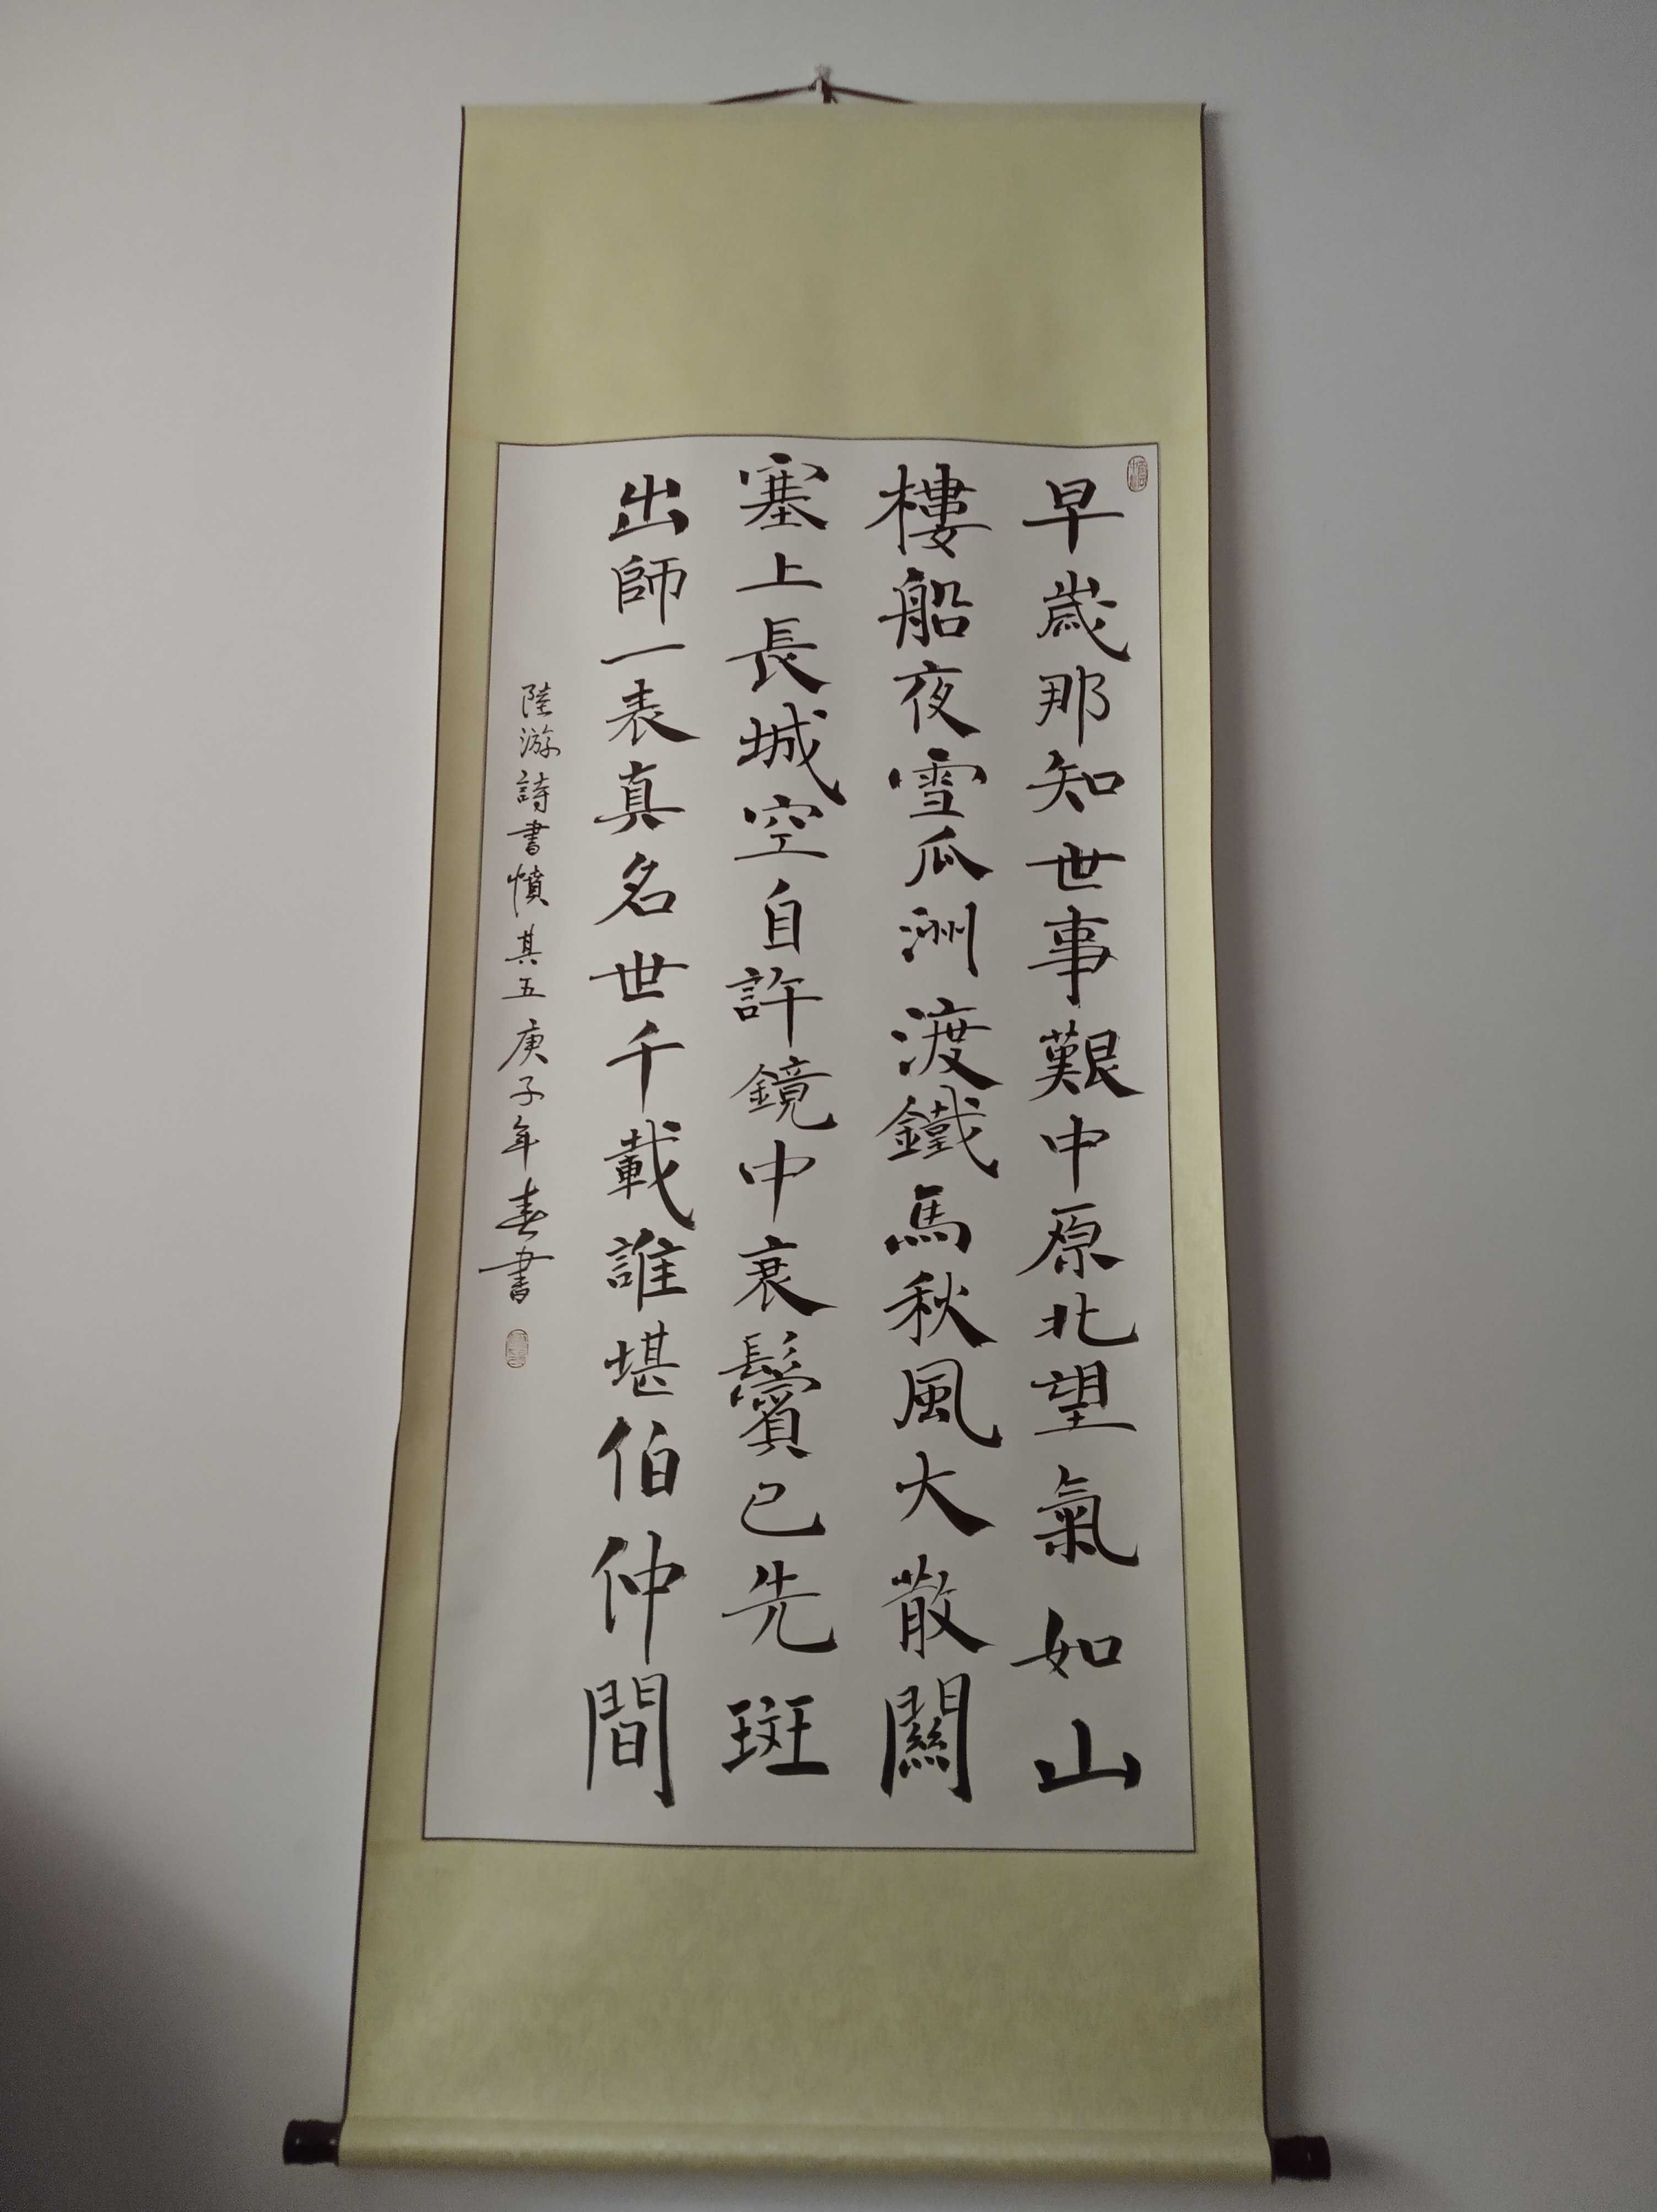 早歲那知世事艱中原北望氣如山
樓船夜雪瓜洲渡鐵馬秋風大散關
塞上長城空自許鏡中衰鬢已先斑
出師一表真名世千載誰堪伯仲間
陸游詩書憤其五庚子年春書